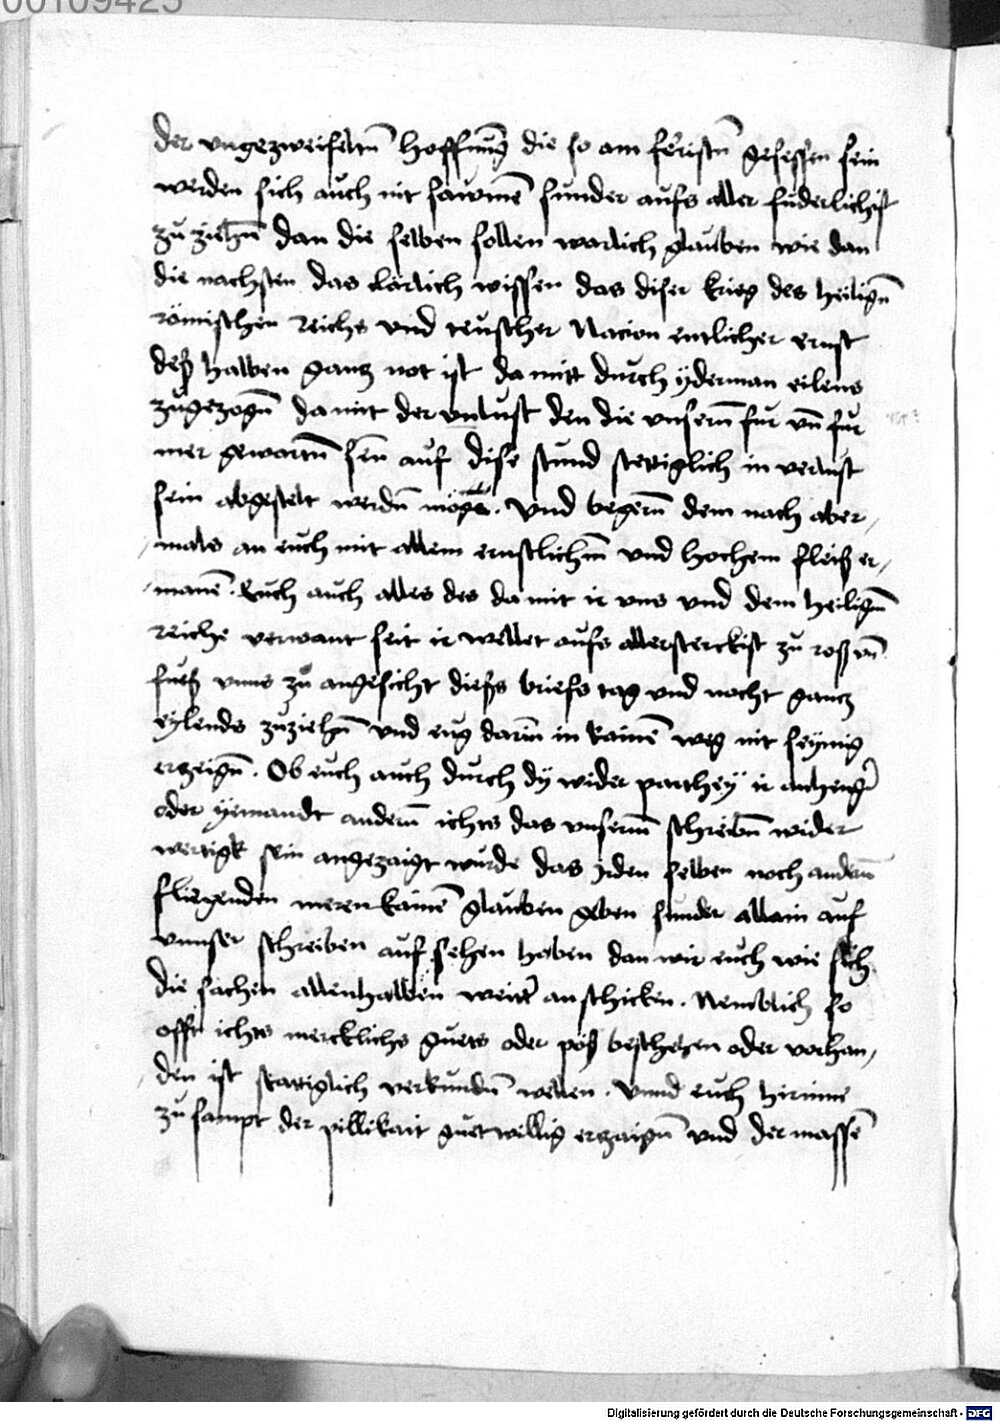 00109425
der ungezweifeltn̄ hoffnūg die so am feristn̄ gesessen sein
werden sich auch nit sawmē sunder aufs aller fuderlichist
zu ziehn̄ dan die selben sollen warlich glauben wie dan
die nachsten das clarlich wissen das diser krieg des heilign̄
römischen reichs und teuscher Nacion entlicher ernst
deß halben gantz not ist da mitt durch yderman eilens
zugezogn̄ da mit der unlust den die unsern̄ fur un̄ fur
mer gewartn̄ sein auf dise stund stetiglich in verlust
sein abgestelt werdn̄ möge. Und begern̄ dem nach aber
mals an euch mit allem ernstlichm̄ und hochem fleiß er
manē. Euch auch alles des da mit ir uns und dem heilign̄
reiche verwant seit ir wellet aufs allersterckist zu roß un̄
fueß unns zu angesicht dießs briefs tag und nacht gantz
eylends zuziehn̄ und eug darin̄ in kainē weg nit seymig
erzeign̄. Ob euch auch durch dy wider parthey ir anhenger
oder yemandt anderm̄ ichts das unserm̄ schreibn̄ wider
wertigk sein angezaigt wurde das ir den selben noch andern̄
fliegenden meren kainē glauben geben sunder allain auf
unnser schreiben auf sehen haben dan wir euch wie sich
die sachen allenhalben weiter an schicken. Nemblich so
offt ichts mercklichs guets oder pöß beschehen oder vorhan
den ist statiglich verkundn̄ wellen. Unnd euch hirinne
zu sampt der pillikait guetwillig erzaign̄ und der massē
Digitalisierung gefördert durch die Deutsche Forschungsgemeinschaft - DFG